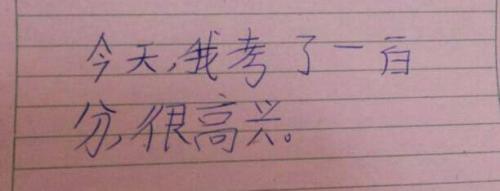 今天,我考了一百
分,很高兴。